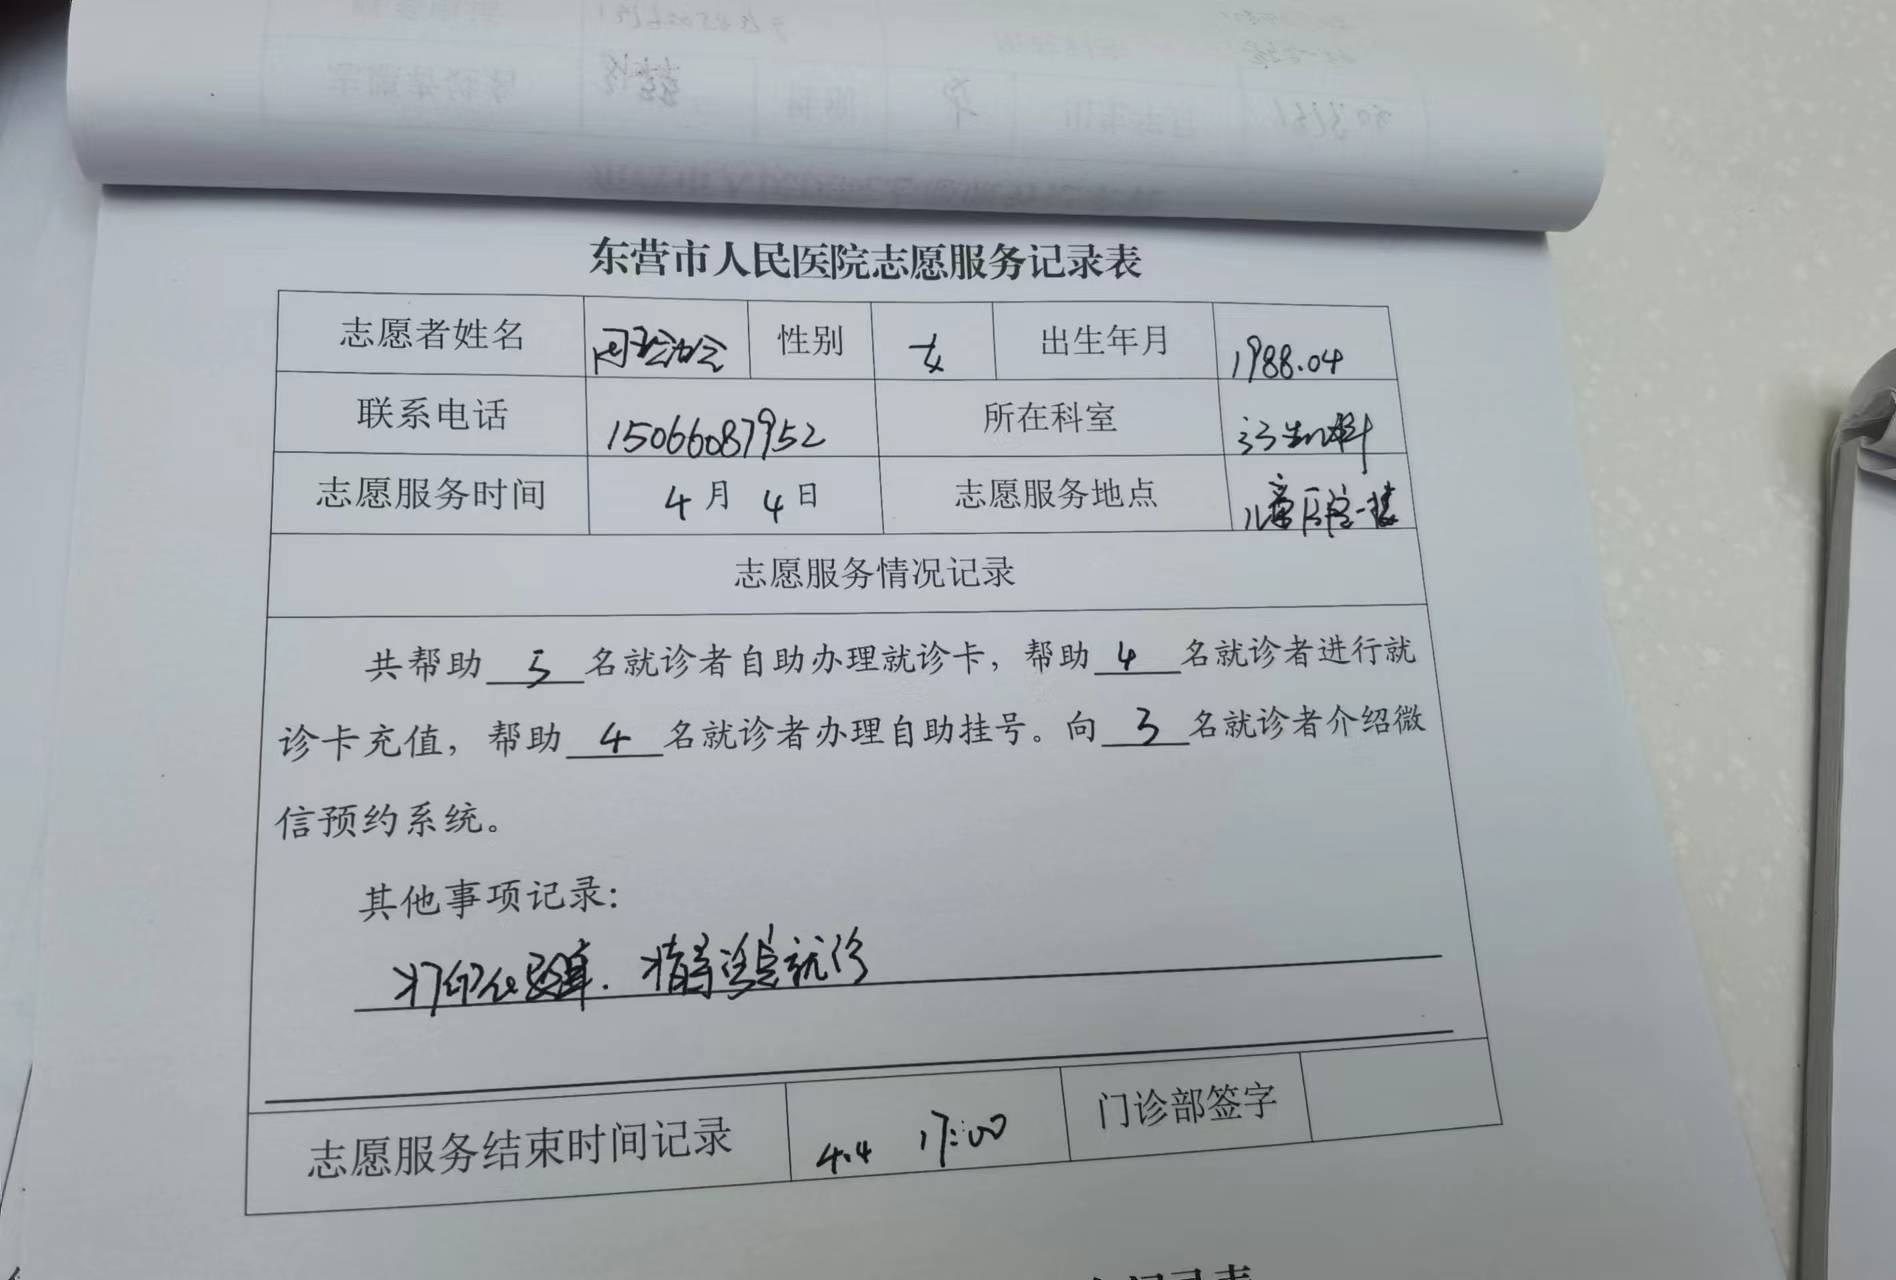 东营市人民医院志愿服务记录表
志愿者姓名 性别 女 出生年月 1988.04
联系电话 15066087952 所在科室
志愿服务时间 4月4日 志愿服务地点 儿童医院一楼
志愿服务情况记录
共帮助 5 名就诊者自助办理就诊卡，帮助 4 名就诊者进行就
诊卡充值，帮助 4 名就诊者办理自助挂号。向 3 名就诊者介绍微
信预约系统。
其他事项记录：
打印化验单．指导就诊
志愿服务结束时间记录 4.4 17:00 门诊部签字